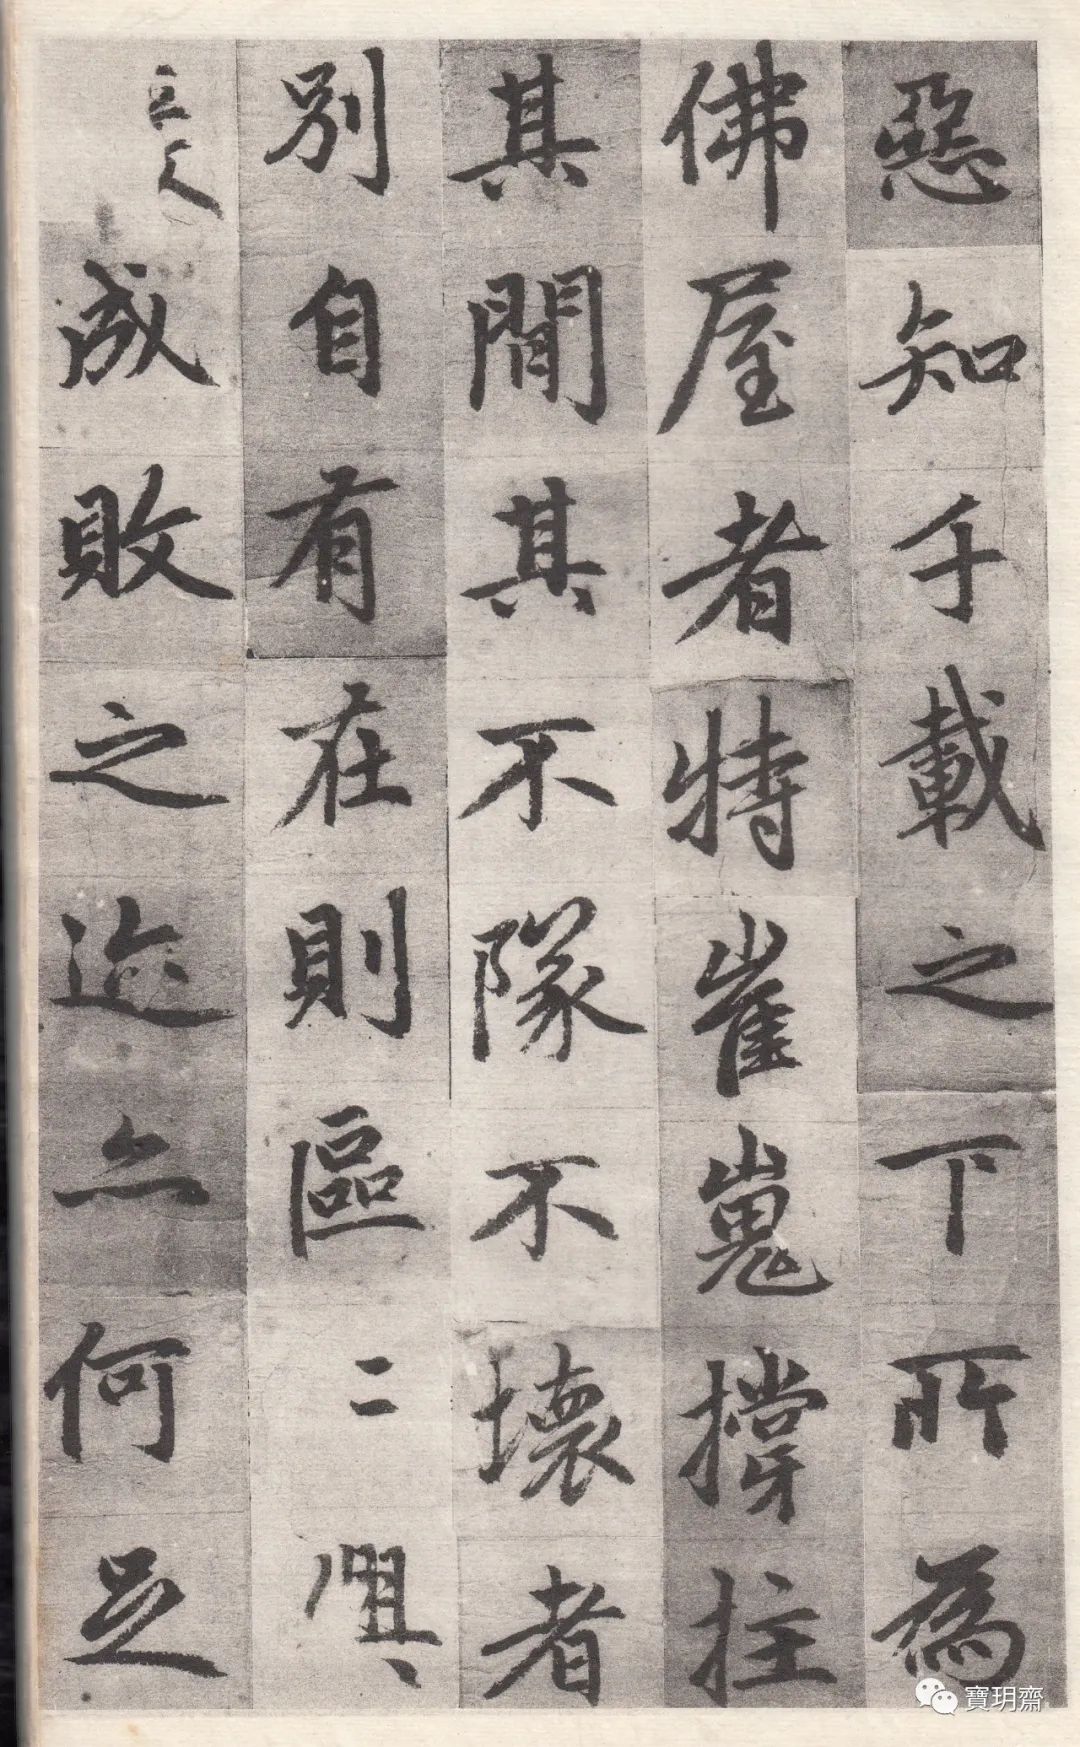 惡知千載之下所為
佛屋者特崔嵬撐拄
其間其不隊不壞者
別自有在則區二興
成敗之迹亦何足
寶玥齋